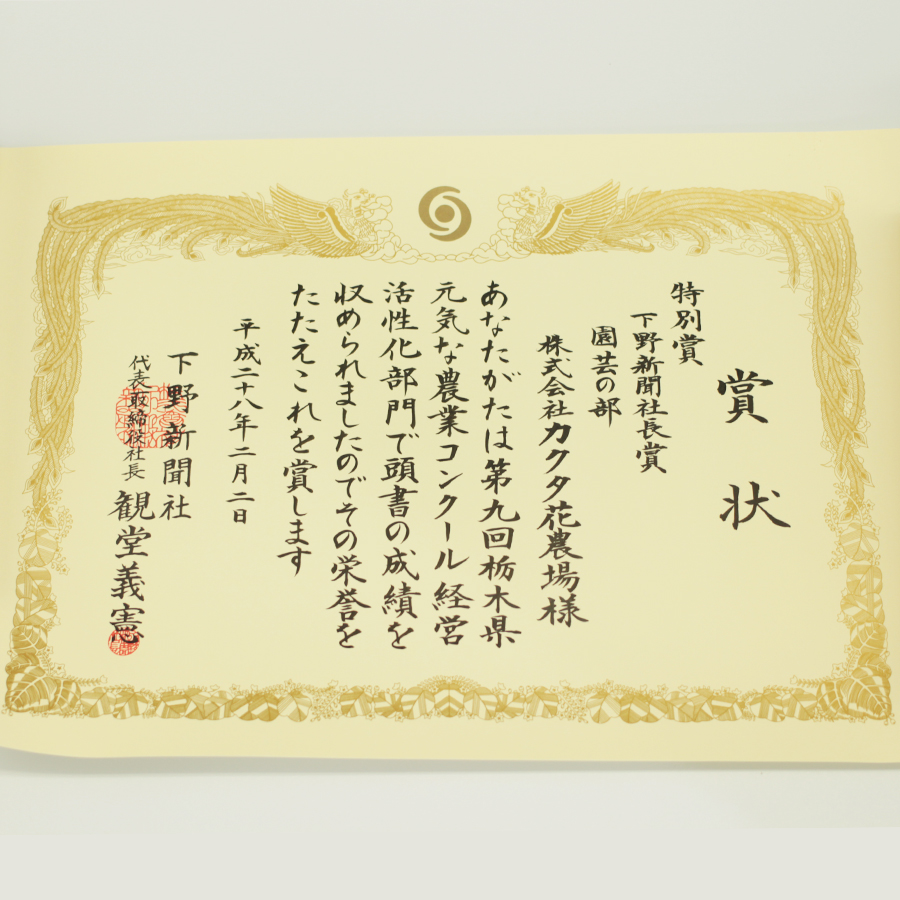 賞状
特別賞
下野新聞社長賞
園芸の部
株式会社カクタ花農場様
あなたがたは第九回栃木県
元気な農業コンクール経営
活性化部門で頭書の成績を
収められましたのでその栄誉を
たたえこれを賞します
平成二十八年二月二日
下野新聞社
代表取締役社長 観堂義憲